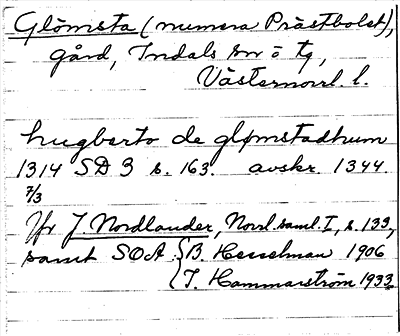 Glömsta (numera Prästbolet),
gård, Indals sn o tg,
Västernorrl. l.
hugberto de glømstadhum
1314 SD 3 s. 163. avskr. 1344.
7/3
Jfr J Nordlander, Norrl. saml. I, s. 133,
samt SOA: B. Hesselman 1906
J. Hammarström 1933